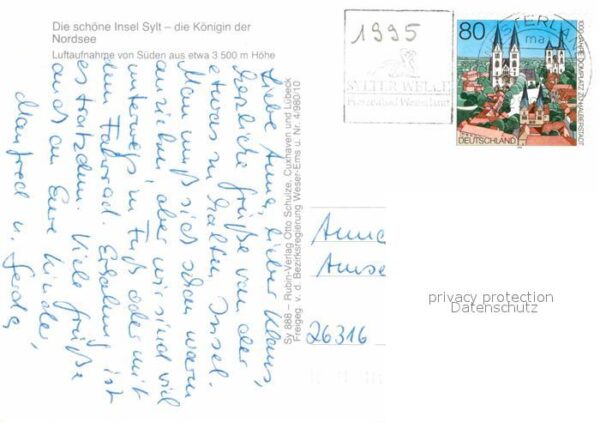 Die schöne Insel Sylt – die Königin der
Nordsee
Luftaufnahme von Süden aus etwa 3 500 m Höhe
Liebe Anna, lieber Klaus,
Herzliche Grüße von der
etwas zu kalten Insel.
Man muß sich schon warm
anziehen, aber wir sind viel
unterwegs zu Fuß oder mit
dem Fahrrad. Erholung ist
es trotzdem. Viele Grüße
auch an Eure Kinder,
Manfred u. Gerda
Sy 888 – Rubin-Verlag Otto Schulze, Cuxhaven und Lübeck
Freigeg. v. d. Bezirksregierung Weser-Ems u. Nr. 4/980/10
1995
SYLTER WELLE
Freizeitbad Westerland
80
1000 JAHRE DOMPLATZ ZU HALBERSTADT
DEUTSCHLAND
Anna
Amse
26316
privacy protection
Datenschutz